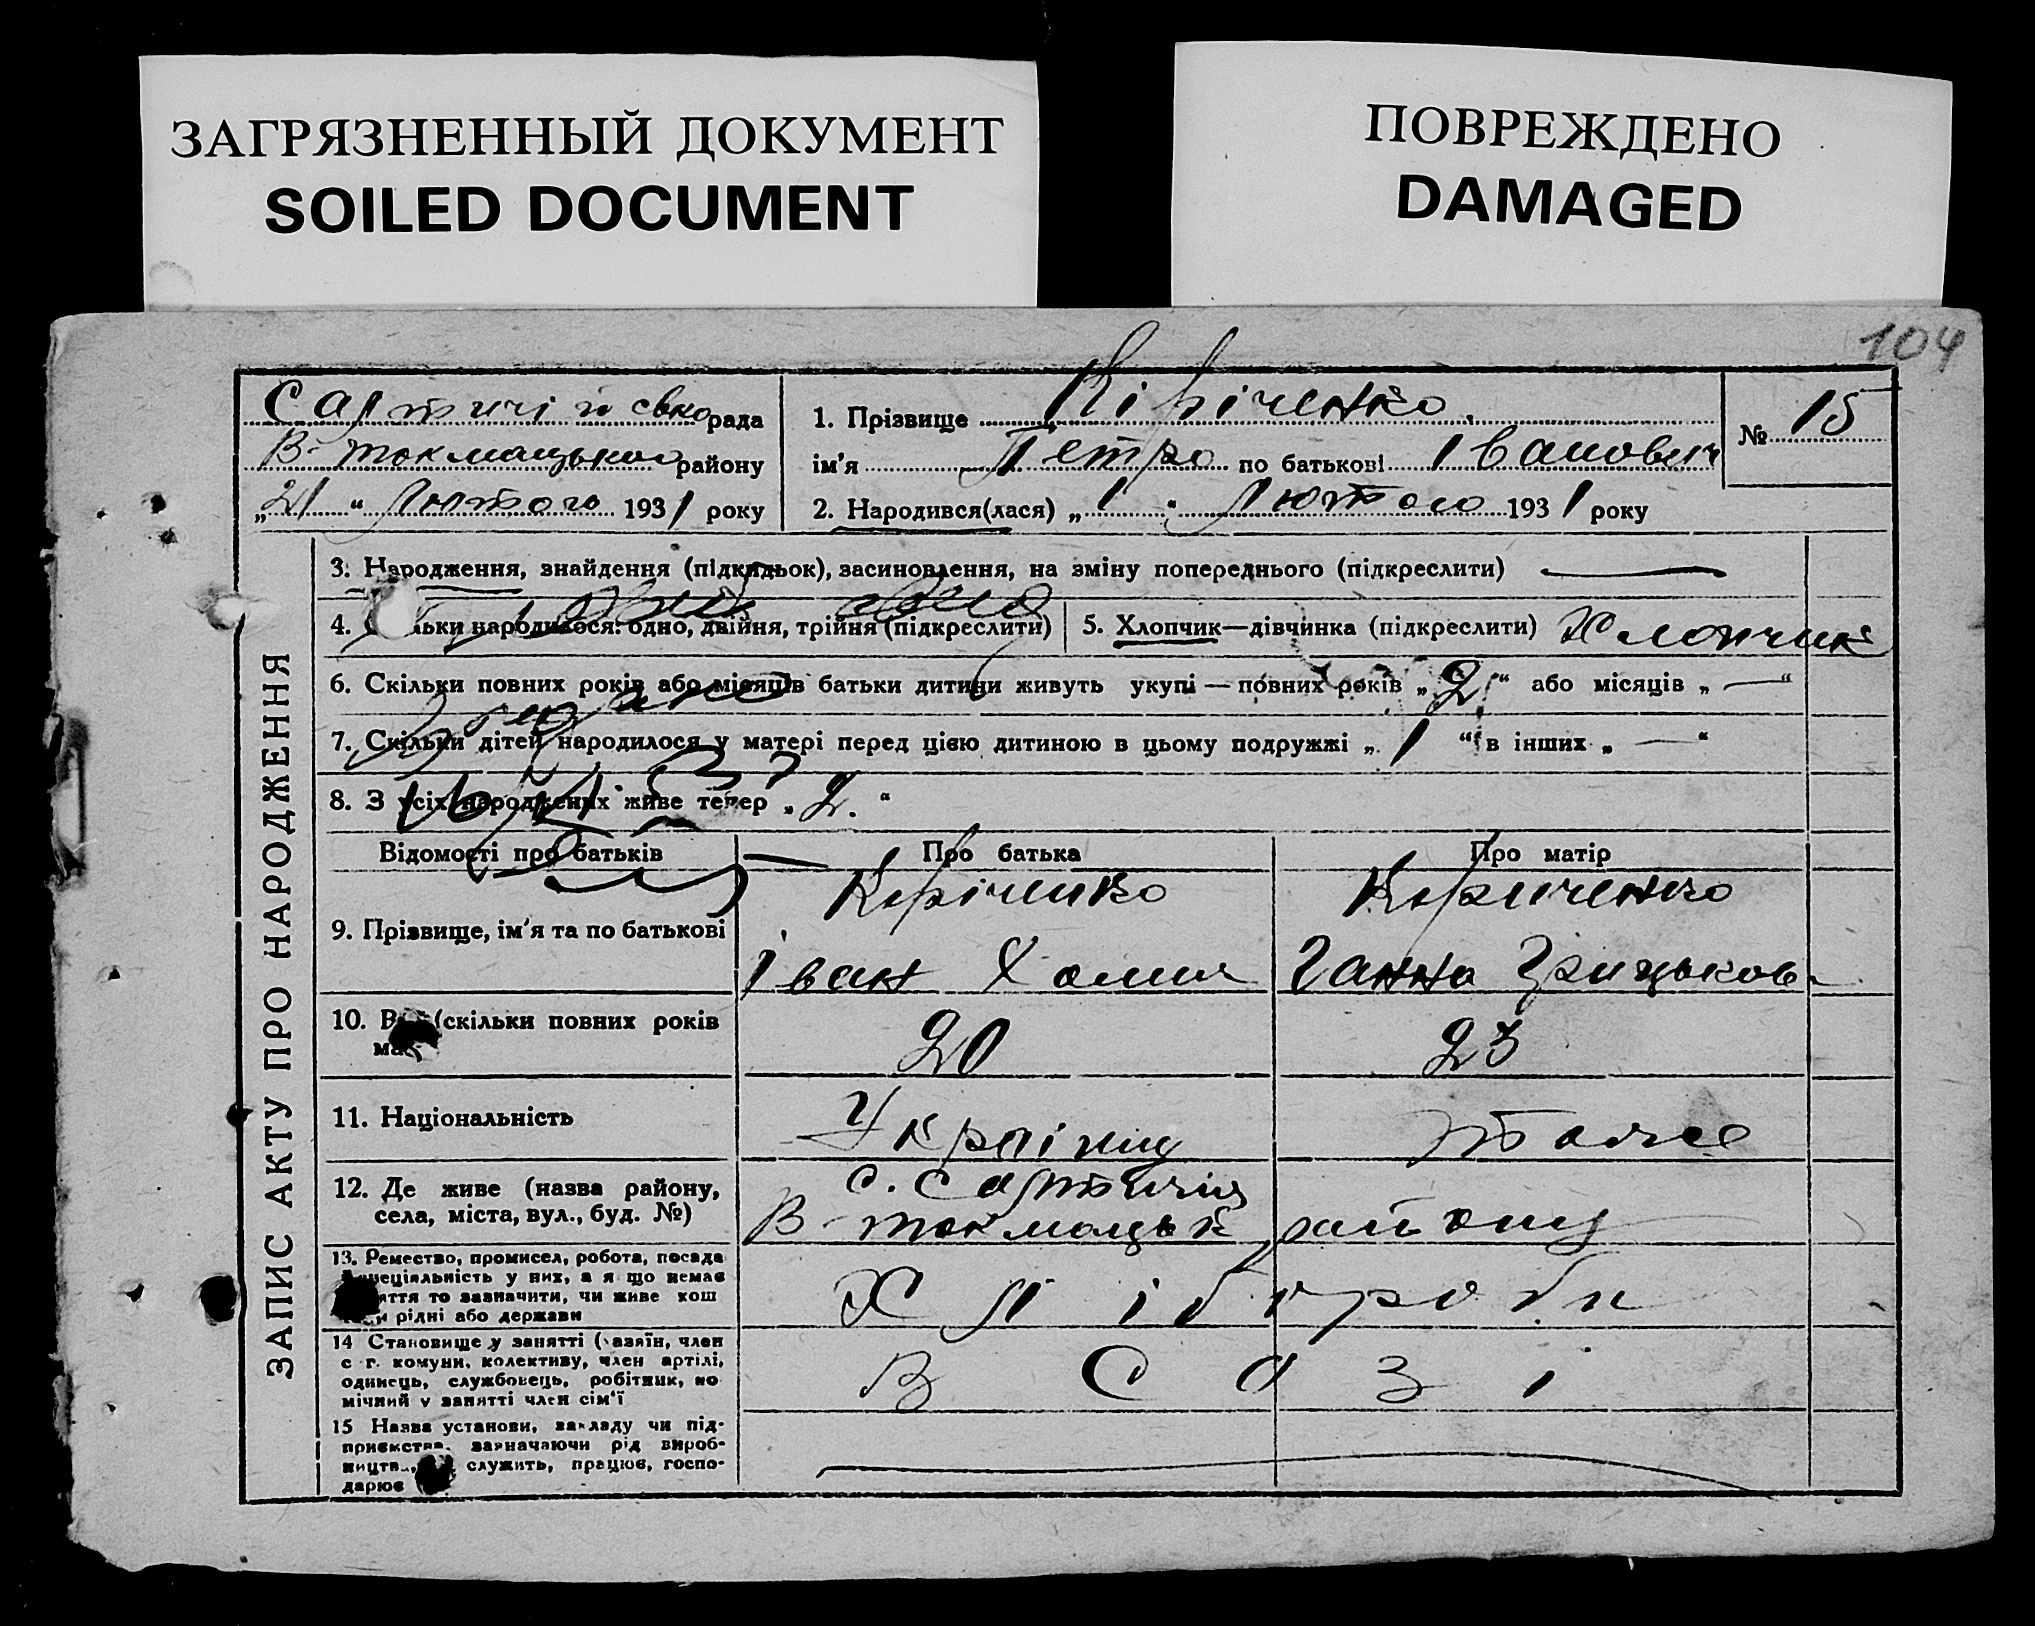 ЗАГРЯЗНЕННЫЙ ДОКУМЕНТ
SOILED DOCUMENT
ПОВРЕЖДЕНО
DAMAGED
104
рада
В-токмацького району
„21“ Лютого 1931 року
1. Прізвище Кіріченко
ім'я Петро по батькові Іванович
№ 15
2. Народився(лася) „1“ Лютого 1931 року
ЗАПИС АКТУ ПРО НАРОДЖЕННЯ
3. Народження, знайдення (підкидьок), засиновлення, на зміну попереднього (підкреслити)
4. народилося: одно, двійня, трійня (підкреслити)
5. Хлопчик—дівчинка (підкреслити) Хлопчик
6. Скільки повних років або місяців батьки дитини живуть укупі — повних років „2“ або місяців „—“
7. Скільки дітей народилося у матері перед цією дитиною в цьому подружжі „1“ в інших „—“
8. З усіх народжених живе тепер „2.“
Відомості про батьків
Про батька
Про матір
9. Прізвище, ім'я та по батькові
Кіріченко
Іван Хомич
Кириченко
Ганна Грицьков
10. (скільки повних років
20
23
11. Національність
Україну
тоже
12. Де живе (назва району,
села, міста, вул., буд. №)
с.
В-токмацьк району
13. Ремество, промисел, робота, посада
у них, а я що немає
то зазначити, чи живе кош
рідні або держави
Хлібороби
14 Становище у занятті (хазяїн, член
с г. комуни, колективу, член артілі,
одинець, службовець, робітник, по
мічний у занятті член сім'ї
В Созі
15 Назва установи, закладу чи під-
приємства, зазначаючи рід вироб-
служить, працює, госпо-
дарює